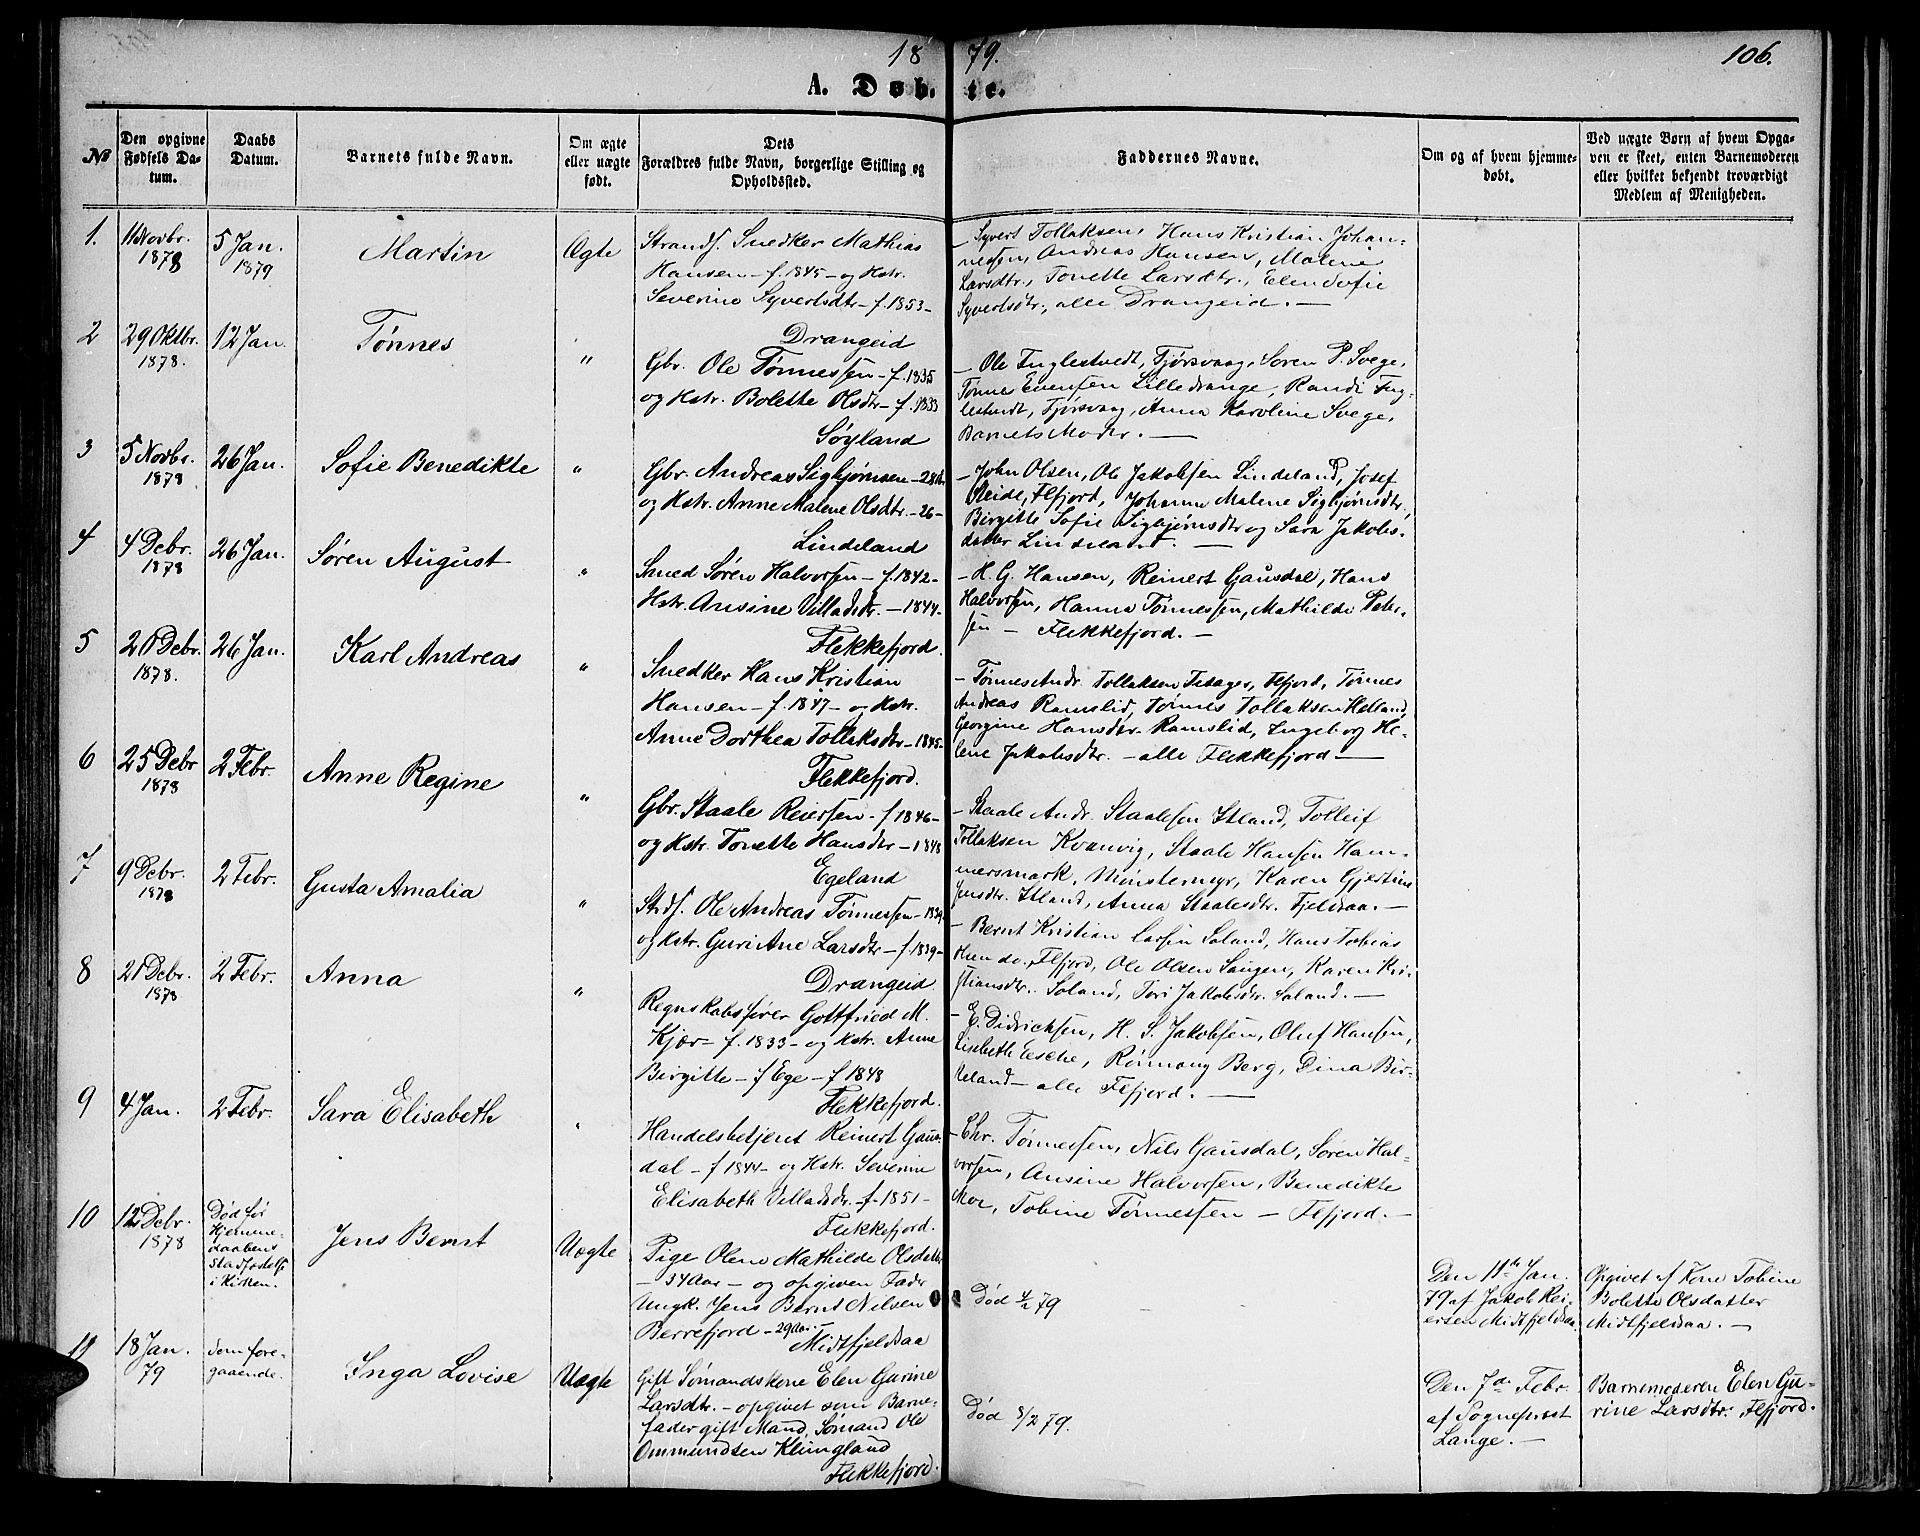 18 79. 106.
A. Døbte.
No
Den opgivne Fødsels Datum.
Daabs Datum.
Barnets fulde Navn.
Om ægte eller uægte født.
Dets Forældres fulde Navn, borgerlige Stilling og Opholdssted.
Faddernes Navne.
Om og af hvem hjemmedøbt.
Ved uægte Børn af hvem Opgaven er skeet, enten Barnemoderen eller hvilket bekjendt troværdigt Medlem af Menigheden.
1.
11 Novbr.
1878
5 Jan.
1879
Martin
Ægte
Strands. Snedker Mathias
Hansen – f. 1845 – og Kstr.
Severine Syvertsdtr – f. 1853 –
Drangeid
– Syvert Tollaksen, Hans Kristian Johan-
nessen, Andreas Hansen, Malene
Larsdtr., Tonette Larsdtr., Elen Sofie
Syvertsdtr., alle Drangeid. –
2
29 Oktbr.
1878.
12 Jan.
Tønnes
"
Gbr. Ole Tønnessen – f. 1835
og Kstr. Bolette Olsdtr – f. 1833
Søyland
– Ole Inglestvedt, Tjørsvaag, Søren P. Svege,
Tønne Evensen Lilledrange, Randi Ing-
lestvedt, Tjørsvaag, Anna Karoline Svege,
Barnets Moder. –
3
5 Novbr.
1878
26 Jan.
Sofie Benedikte
"
Gbr. Andreas Sigbjørnsen – 28
og Kstr. Anne Malene Olsdtr. – 26 –
Lindeland
– John Olsen, Ole Jakobsen Lindeland, Josef
Eeide, Flfjord, Johanne Malene Sigbjørnsdtr,
Birgitte Sofie Sigbjørnsdtr og Sara Jakobs-
datter Lindeland. –
4
4 Debr.
1878
26 Jan.
Søren August
"
Smed Søren Halvorsen – f. 1842 –
Kstr. Ansine Villadsdr. – 1844 –
Flekkefjord.
– H. G. Hansen, Reinert Gausdal, Hans
Halvorsen, Hanna Tønnessen, Mathilde Peter-
sen – Flekkefjord. –
5
20 Debr.
1878.
26 Jan.
Karl Andreas
"
Snedker Hans Kristian
Hansen – f. 1847 – og Kstr.
Anne Dorthea Tollaksdtr – 1845 –
Flekkefjord.
– Tønnes Andr. Tollaksen Tesager, Flfjord, Tønnes
Andreas Ramslid, Tønnes Tollaksen Helland,
Georgine Hansdtr. Ramslid, Ingeborg He-
lene Jakobsdtr. – alle Flekkefjord –
6
25 Debr
1878
2 Febr.
Anne Regine
"
Gbr. Staale Reiersen – f 1846 –
og Kstr. Tonette Hansdtr – 1848
Egeland
– Staale Andr. Staalesen Itland, Tolleif
Tollaksen Kvanvig, Staale Hansen Ham-
mersmark, Münstermyr, Karen Gjertine
Jensdtr. Itland, Anna Staalesdtr. Fjeldsaa. –
7
9 Debr.
1878
2 Febr.
Gusta Amalia
"
Strds. Ole Andreas Tønnessen – 1839
og Kstr. Guri Ane Larsdtr – f. 1839 –
Drangeid
– Bernt Kristian Larsen Soland, Hans Tobias
, Flfjord, Ole Olsen Laugen, Karen Kri-
stiansdtr. Soland, Tori Jakobsdtr. Soland. –
8
21 Debr.
1878
2 Febr.
Anna
"
Regnskabsfører Gottfried M.
Kjær – f. 1833 – og Kstr. Anne
Birgitte – f Ege – f 1848
Flekkefjord.
– E. Didrichsen, H. S. Jakobsen, Oluf Hansen,
Lisebeth Eesche, Rønnaug Berg, Dina Bir-
keland – alle Flfjord. –
9
4 Jan.
2 Febr.
Sara Elisabeth
"
Handelsbetjent Reinert Gaus-
dal – f 1844 – og Kstr. Severine
Elisabeth Villadsdr. – f. 1851 –
Flekkefjord.
– Chr. Tønnessen, Nils Gausdal, Søren Hal-
vorsen, Ansine Halvorsen, Benedikte
Moe, Tobine Tønnessen – Flfjord. –
10
12 Debr.
1878
Død før
Hjemme-
daabens
Stadfæstelse
i Kirken.
Jens Bernt
Uægte
Pige Olene Mathilde Olsdatter
– 34 Aar – og opgiven Fader
Ungk. Jens Bernt Nilsen
Berrefjord – 29 Aar –
Midtfjeldsaa
Død 4/2 79
Den 11te Jan.
79 af Jakob Rei-
ersen Midtfjeldsaa.
Opgivet af Kone Tobine
Bolette Olsdatter
Midtfjeldsaa. –
11
18 Jan.
79
Som fore-
gaaende.
Inga Lovise
Uægte
Gift Sømandskone Elen Gurine
Larsdtr. – opgivet som Barne-
fader gift Mand, Sømand Ole
Ommundsen Klungland
Flekkefjord.
Død 8/2 79.
Den 7de Febr.
af Sogneprest
Lange. –
Barnemoderen Elen Gu-
rine Larsdtr. Flfjord.